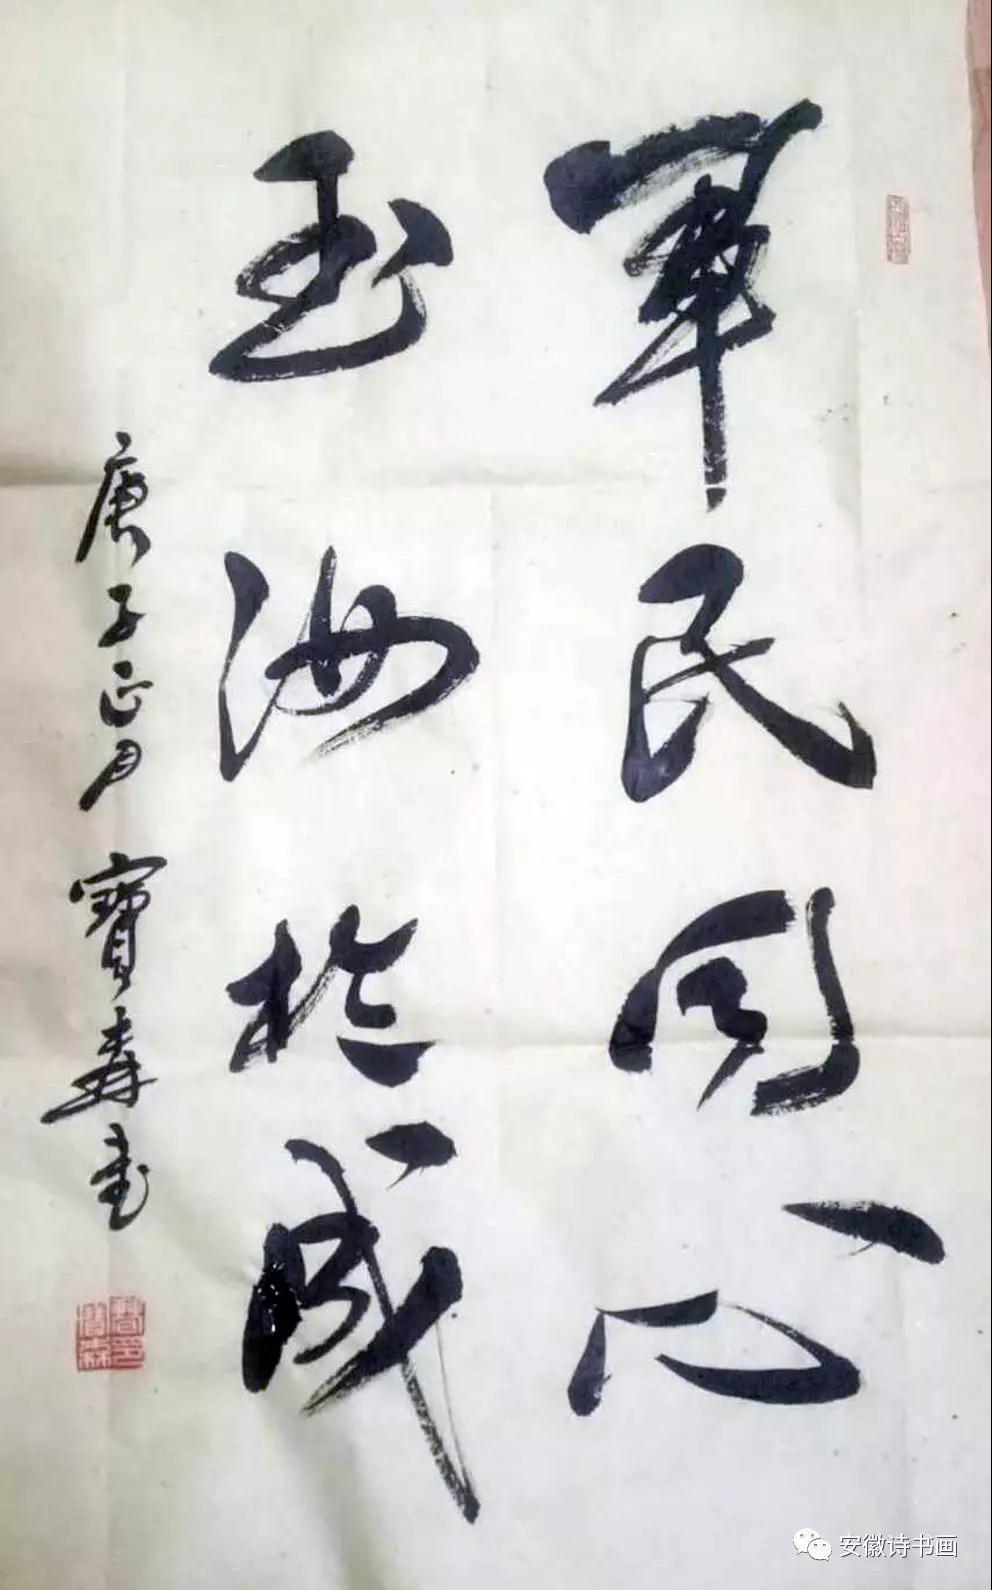 軍民同心
玉汝於成
庚子正月寶壽書
安徽诗书画